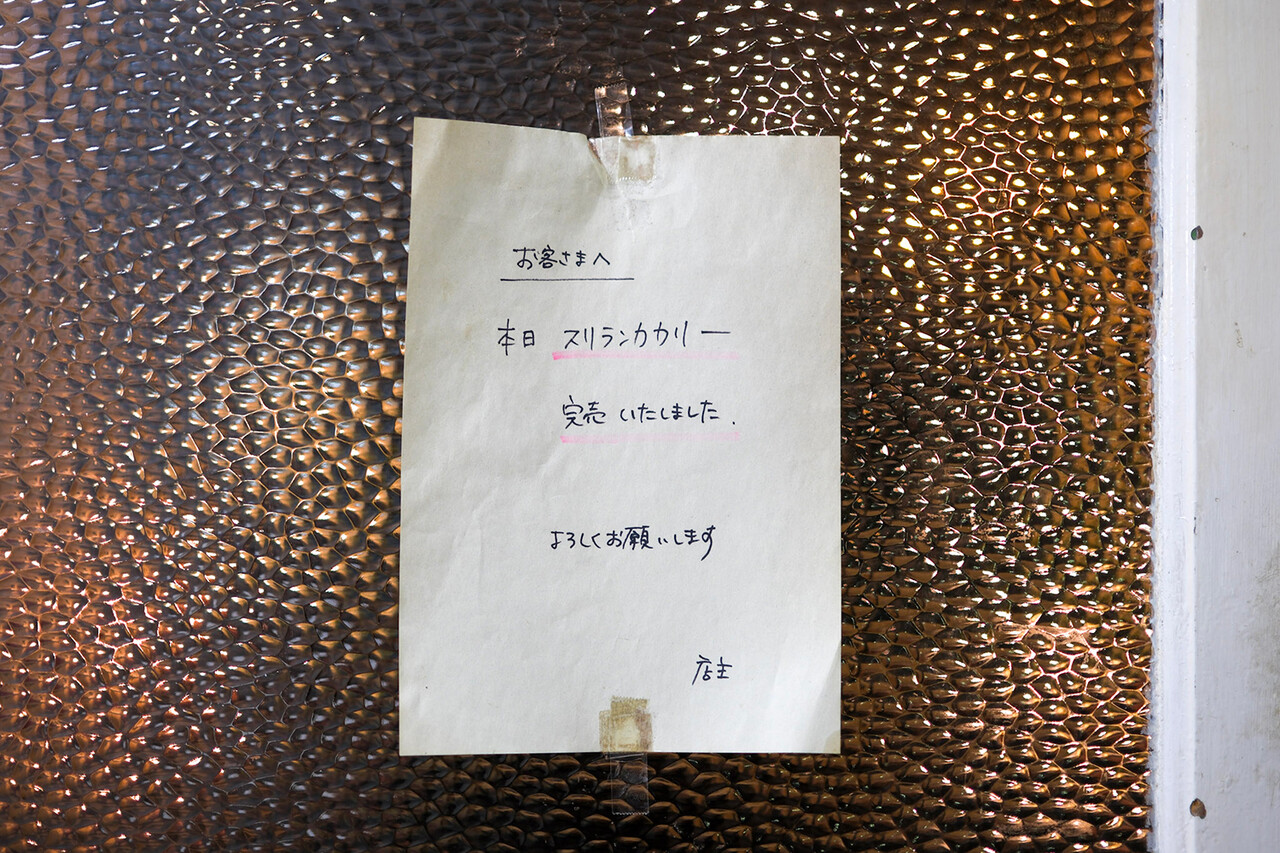 お客さまへ
本日 スリランカカリー
完売いたしました.
よろしくお願いします
店主